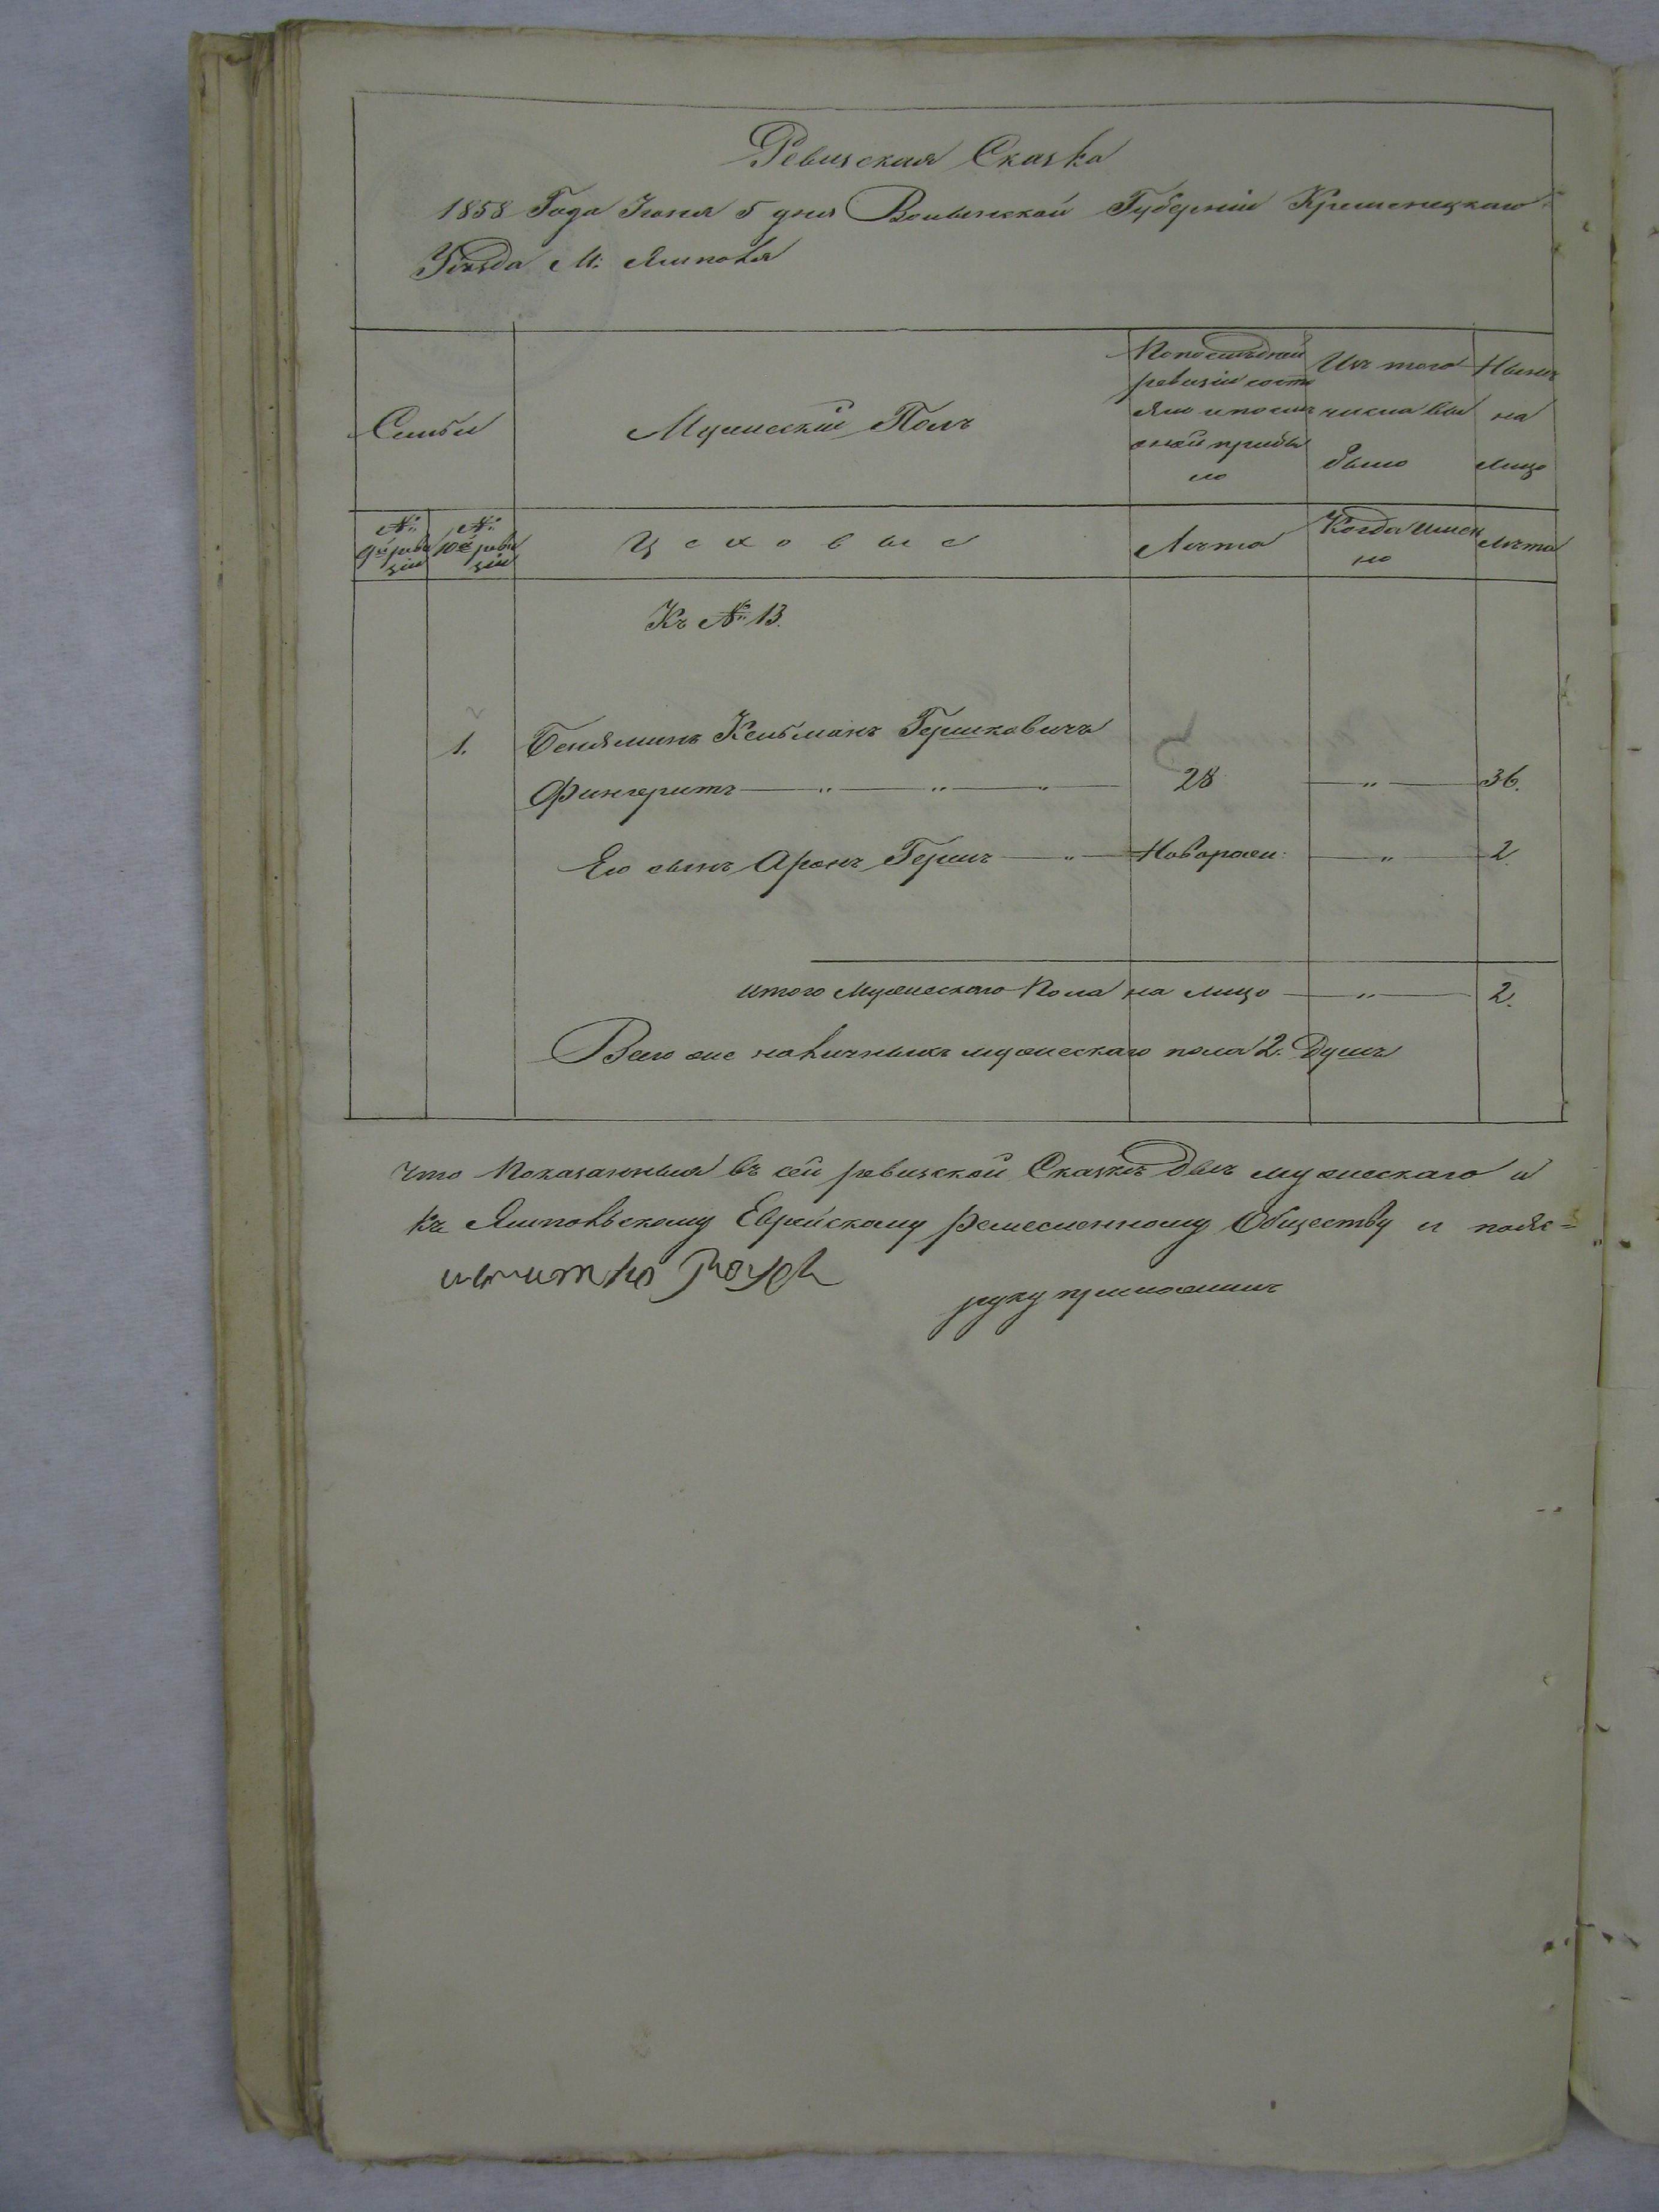 Ревизская Сказка
1858 Года Июня 5 дня Волынской Губерніи Кременецкаго
Уѣзда М: Ямполя
Семьи
Мужескій Полъ
По последней
ревизіи состо
яло и после
оной прибы
ло
Изъ того
числа вы
было
Нынѣ
на
лицо
№ 9й реви
зіи
№ 10й реви
зіи
Цеховые
Лѣта
Когда имен
но
Лѣта
Къ № 13.
1. Беняминъ Кельманъ Гершковичъ
Фингерутъ — " — " — " — 28 — " — 36.
Его сынъ Аронъ Гершъ — " — Новорожд: — " — 2.
итого Мужескаго Пола на лицо — " — 2.
Всего же наличныхъ мужескаго пола 2. Душъ
Что Показанныя въ сей ревизской Сказкѣ двѣ мужескаго и
Къ Ямпольскому Еврейскому Ремесленному Обществу и подле=
руку приложилъ